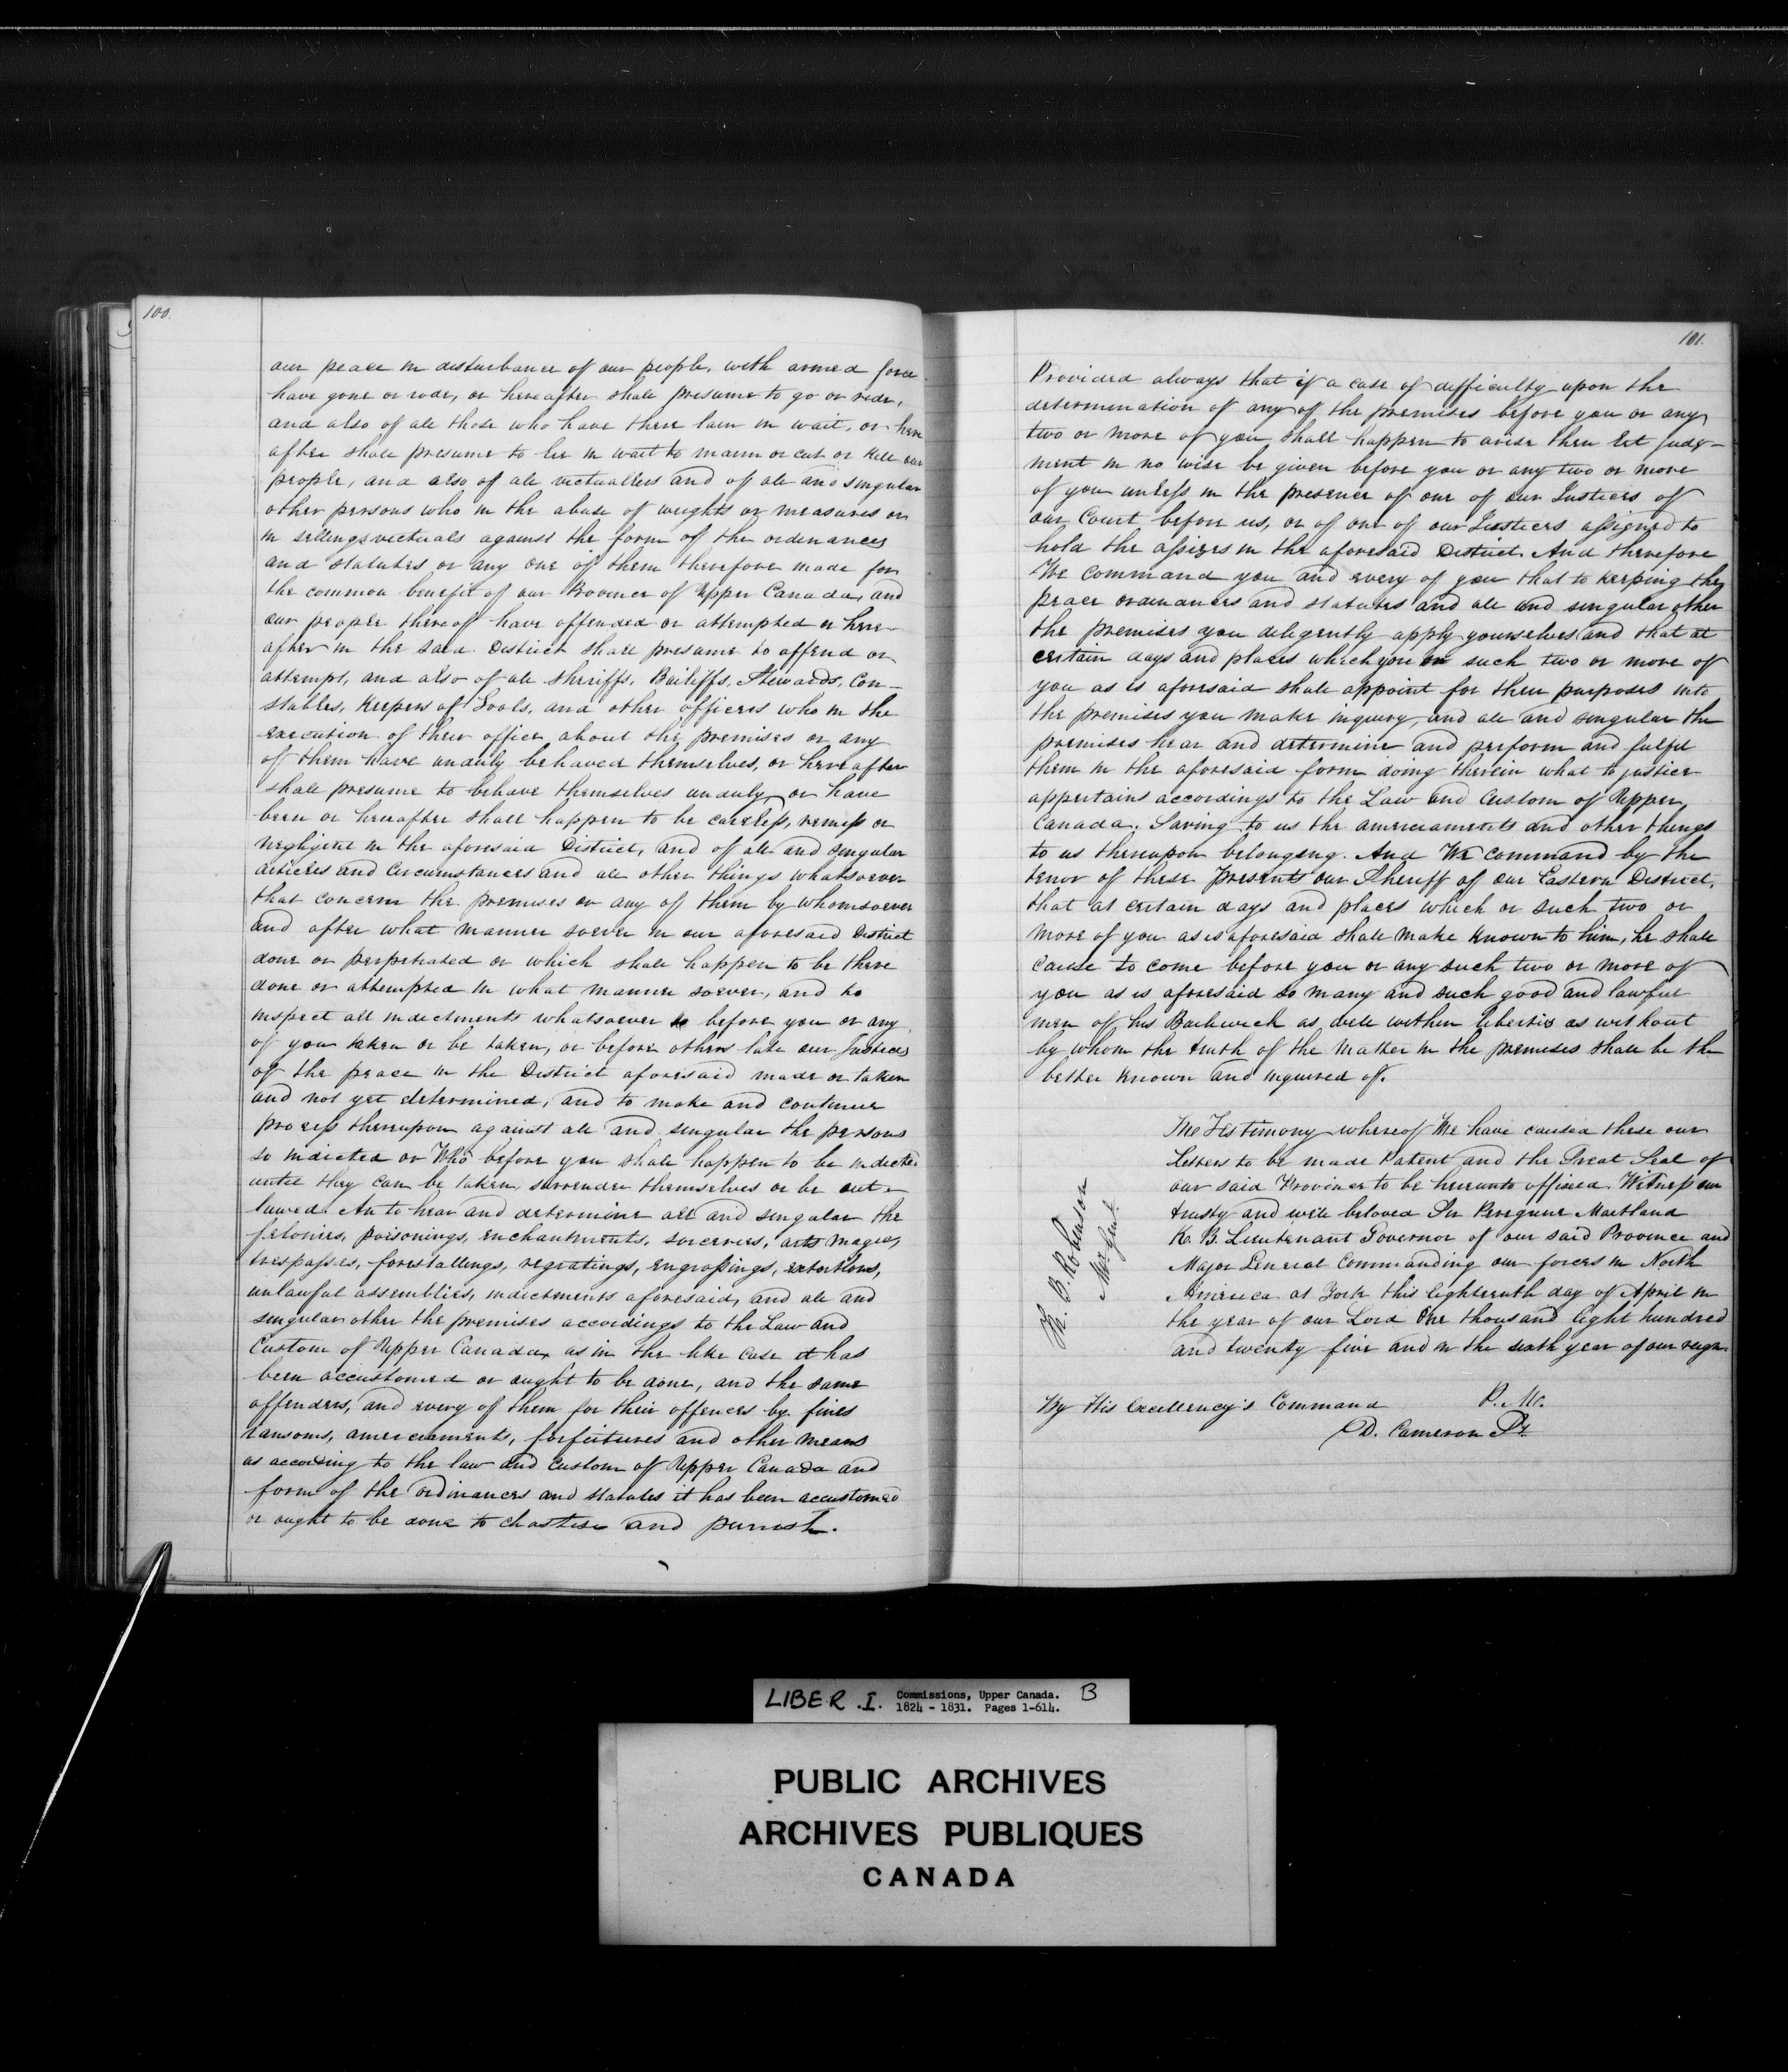 100.
our peace in disturbance of our people, with armed force
have gone or rode, or hereafter shall presume to go or ride,
and also of all those who have there lain in wait, or here
after shall presume to lie in wait to maim or cut or kill our
people, and also of all victuallers and of all and singular
other persons who in the abuse of weights or measures or
in sellings victuals against the form of the ordinances
and statutes or any one of them therefore made for
the common benefit of our Province of Upper Canada, and
our people thereof have offended or attempted or here-
after in the said District shall presume to offend or
attempt, and also of all sheriffs, Bailiffs, Stewards, Con-
stables, Keepers of Goals, and other officers who in the
execution of their office about the premises or any
of them have unduly behaved themselves, or hereafter
shall presume to behave themselves unduly, or have
been or hereafter shall happen to be careless, remiss or
negligent in the aforesaid District, and of all and singular
articles and Circumstances and all other things whatsoever
that concern the premises or any of them by whomsoever
and after what manner soever in our aforesaid District
done or perpetrated or which shall happen to be there
done or attempted in what manner soever, and to
inspect all indictments whatsoever before you or any
of you taken or be taken, or before others late our Justices
of the peace in the District aforesaid made or taken
and not yet determined, and to make and continue
process thereupon against all and singular the persons
so indicted or Who before you shall happen to be indicted
until they can be taken, surrender themselves or be out-
lawed. An to hear and determine all and singular the
felonies, poisonings, enchantments, sorceries, arts magic,
trespasses, forestallings, regratings, engrossings, extortions,
unlawful assemblies, indictments aforesaid, and all and
singular other the premises accordings to the Law and
Custom of Upper Canada, as in the like case it has
been accustomed or ought to be done, and the same
offenders, and every of them for their offences by fines
ransoms, amerciaments, forfeitures and other means
as according to the law and custom of Upper Canada and
form of the ordinances and statutes it has been accustomed
or ought to be done to chastise and punish.
101.
Provided always that if a case of difficulty upon the
determination of any of the premises before you or any
two or more of you shall happen to arise then let judg-
ment in no wise be given before you or any two or more
of you unless in the presence of one of our Justices of
our Court before us, or of one of our Justices assigned to
hold the assizes in the aforesaid District. And therefore
We command you and every of you that to keeping the
peace ordinances and statutes and all and singular other
the premises you diligently apply yourselves and that at
certain days and places which you or such two or more of
you as is aforesaid shall appoint for these purposes into
the premises you make inquiry, and all and singular the
premises hear and determine and perform and fulfil
them in the aforesaid form doing therein what to justice
appertains accordings to the Law and Custom of Upper
Canada. Saving to us the amerciaments and other things
to us thereupon belonging. And We command by the
tenor of these Presents our Sheriff of our Eastern District,
that at certain days and places which or such two or
more of you as is aforesaid shall make known to him, he shall
cause to come before you or any such two or more of
you as is aforesaid so many and such good and lawful
men of his Bailiwick as well within liberties as without
by whom the truth of the matter in the premises shall be the
better known and inquired of.
In Testimony whereof We have caused these our
Letters to be made Patent and the Great Seal of
our said Province to be hereunto affixed. Witness our
trusty and well beloved Sir Peregrine Maitland
K. B. Lieutenant Governor of our said Province and
Major General Commanding our forces in North
America at York this Eighteenth day of April in
the year of our Lord One thousand Eight hundred
and twenty five and in the sixth year of our reign.
B. Robinson
Gen.
By His Excellency's Command P. M.
D. Cameron
LIBER .I. Commissions, Upper Canada. B
1824 - 1831. Pages 1-614.
PUBLIC ARCHIVES
ARCHIVES PUBLIQUES
CANADA